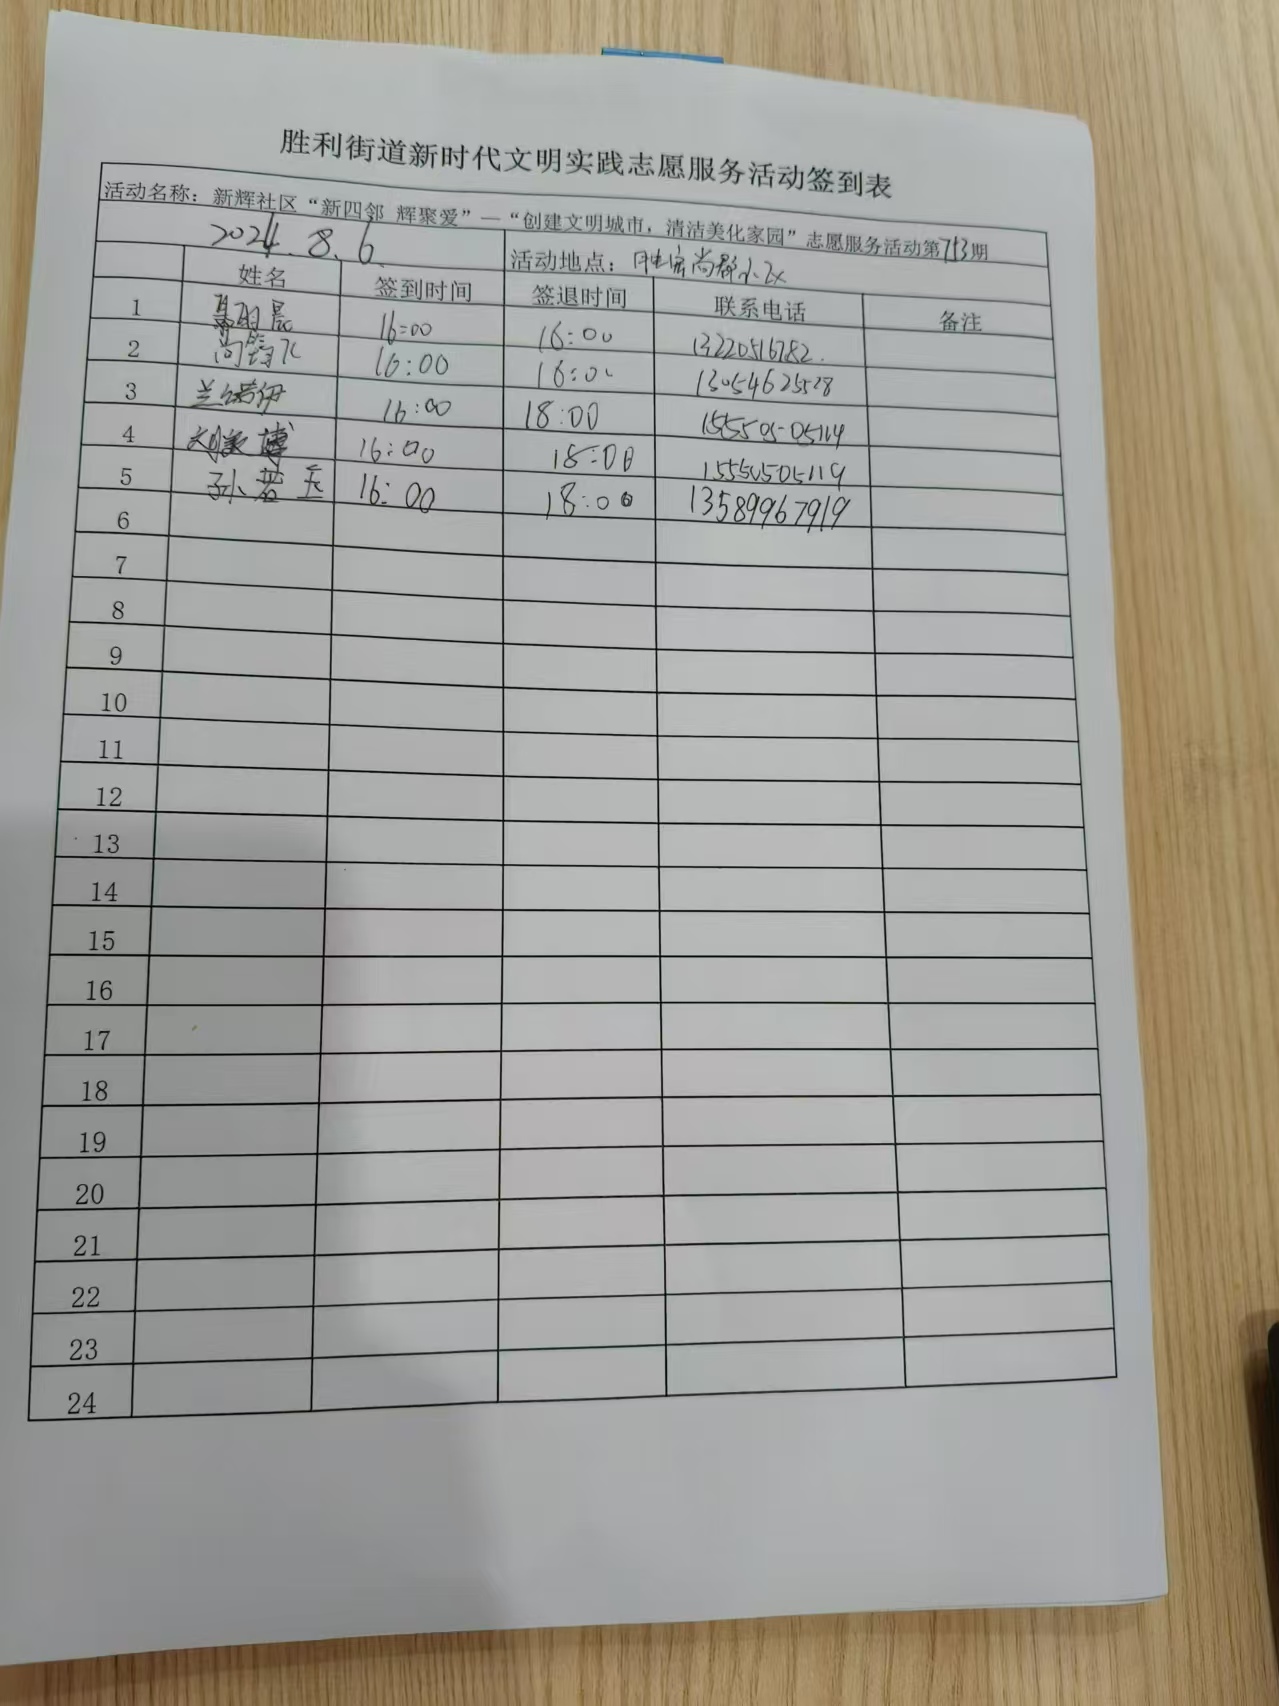 胜利街道新时代文明实践志愿服务活动签到表
活动名称：新辉社区“新四邻 辉聚爱”—“创建文明城市，清洁美化家园”志愿服务活动第753期
2024.8.6. 活动地点：胜宏尚郡小区
姓名 签到时间 签退时间 联系电话 备注
1 16:00 16:00 13220516782.
2 16:00 16:00 13054625528
3 兰绪伊 16:00 18:00 15550505119
4 博 16:00 18:00 15550505119
5 孙若玉 16:00 18:00 13589967919
6
7
8
9
10
11
12
13
14
15
16
17
18
19
20
21
22
23
24